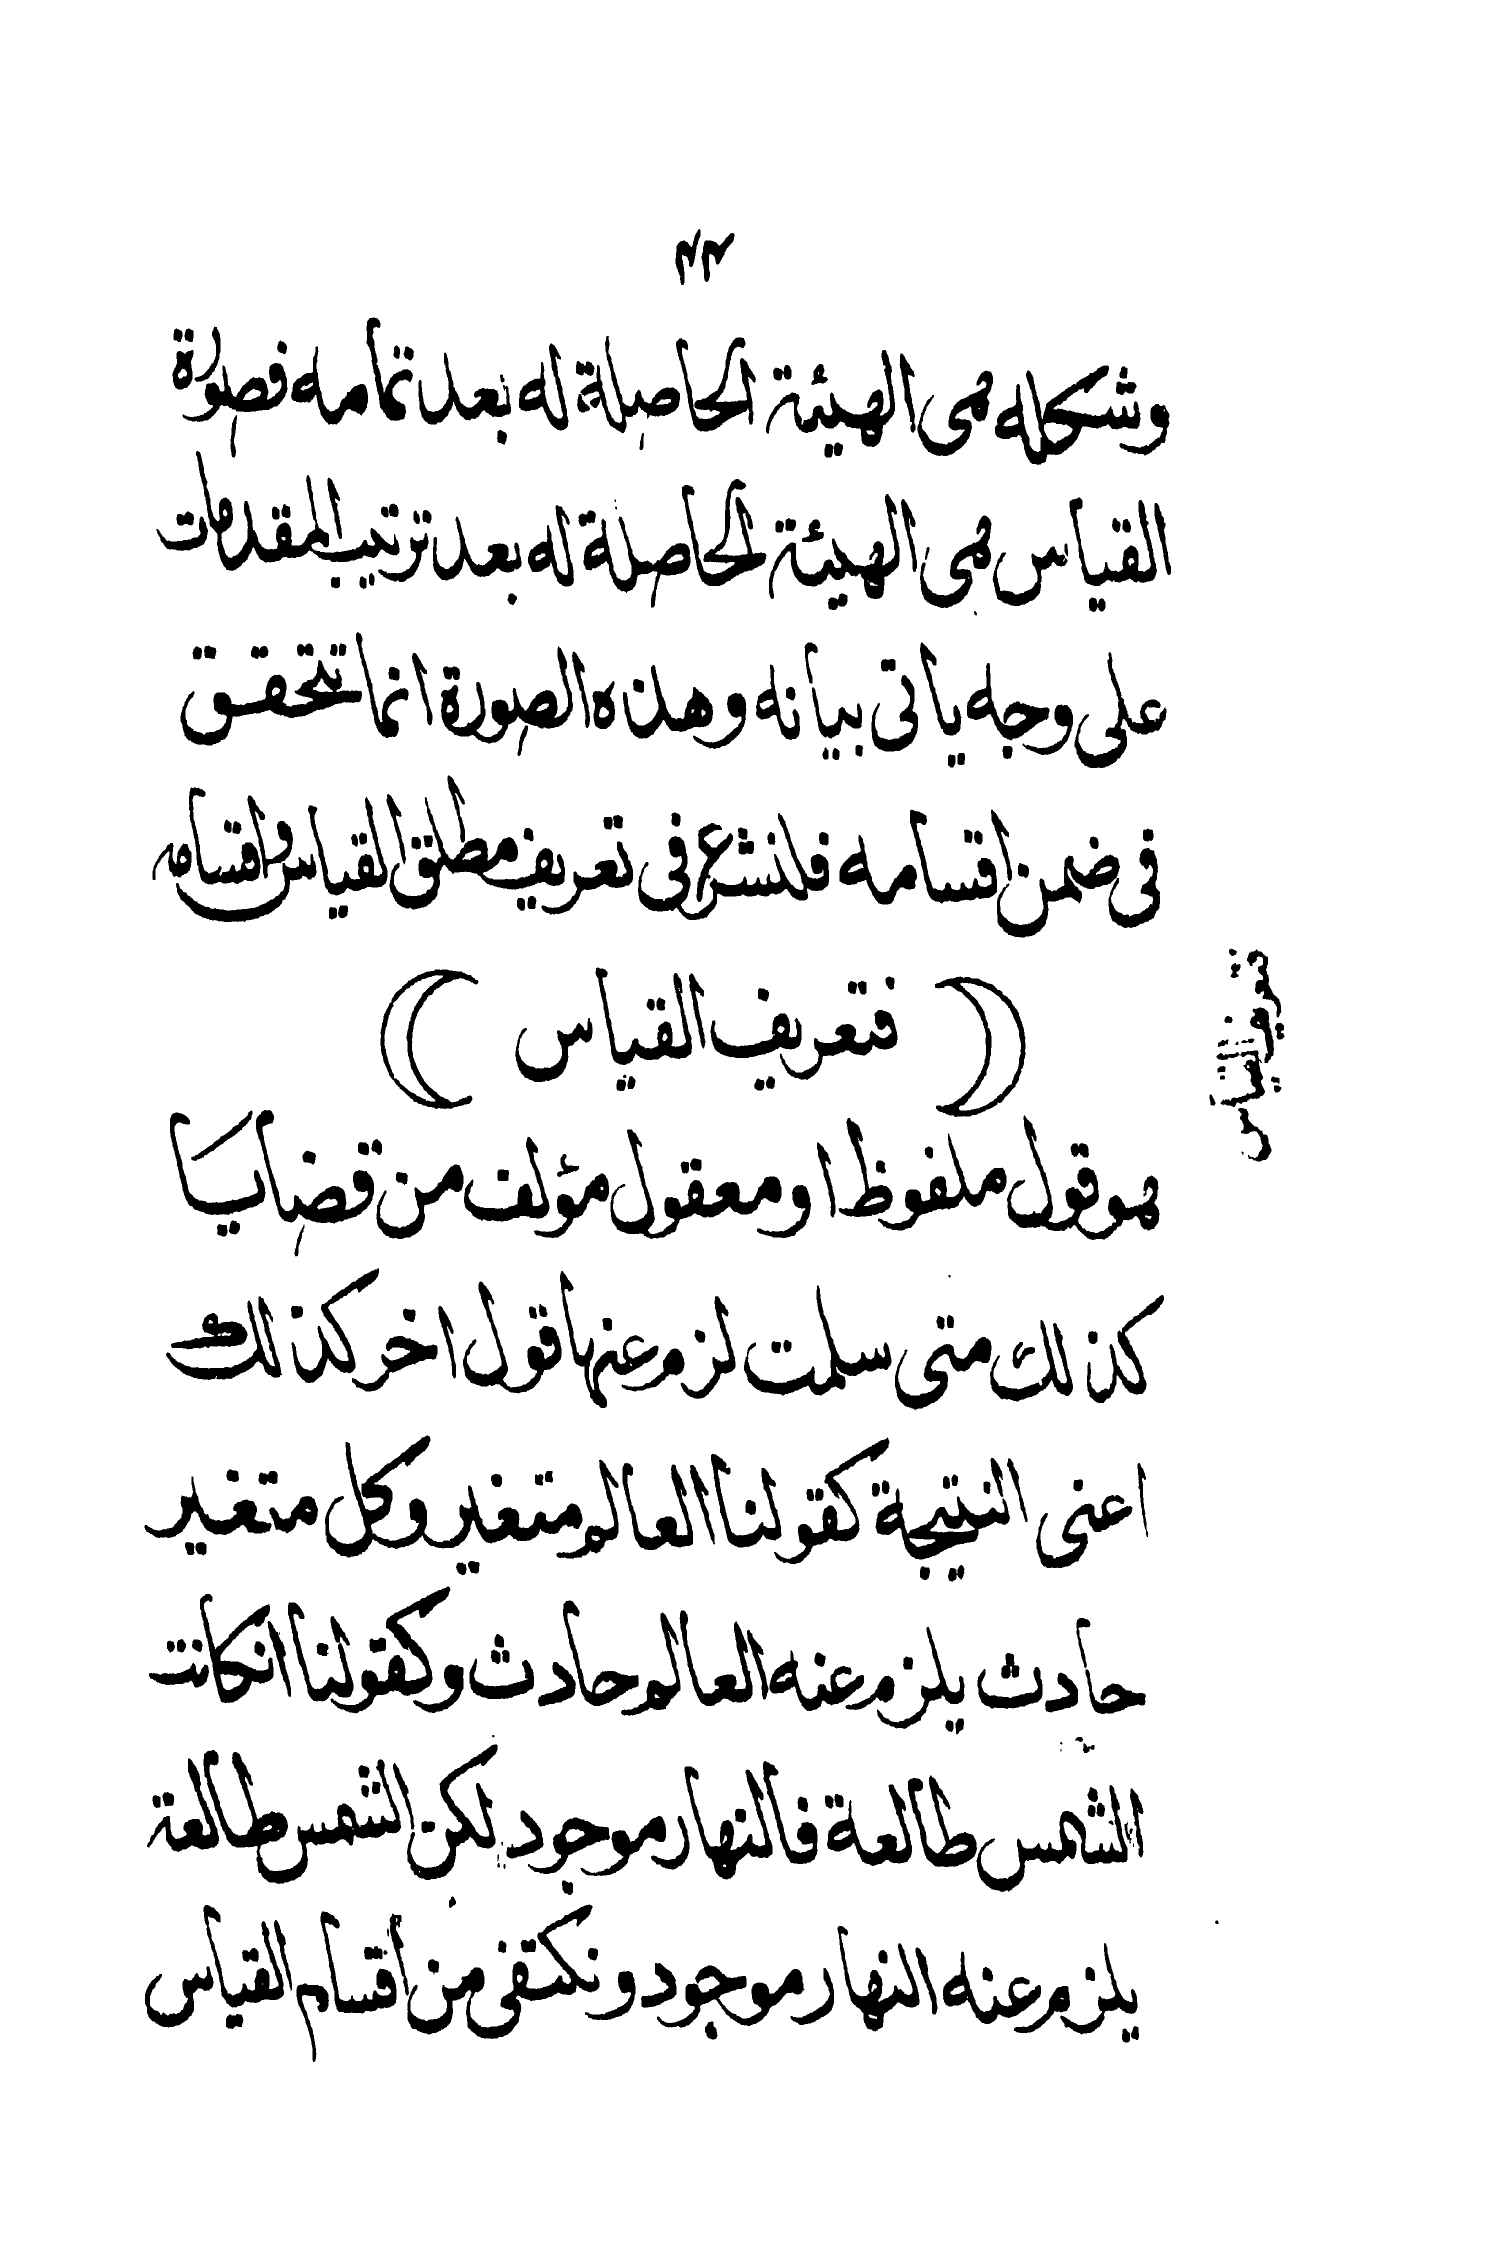 ٤٤
وشكله هى الهيئة الحاصلة له بعد تمامه فصورة
القياس هى الهيئة الحاصلة له بعد ترتيب المقدمات
على وجه ياتى بيانه وهذه الصورة انما تتحقق
فى ضمن اقسامه فلنشرع فى تعريف مطلق القياس واقسامه
( فتعريف القياس )
تعريف القياس
هو قول ملفوظ او معقول مؤلف من قضايا
كذلك متى سلمت لزم عنها قول اخر كذلك
اعنى النتيجة كقولنا العالم متغير وكل متغير
حادث يلزم عنه العالم حادث وكقولنا انكانت
الشمس طالعة فالنهار موجود لكن الشمس طالعة
يلزم عنه النهار موجود ونكتفى من أقسام القياس